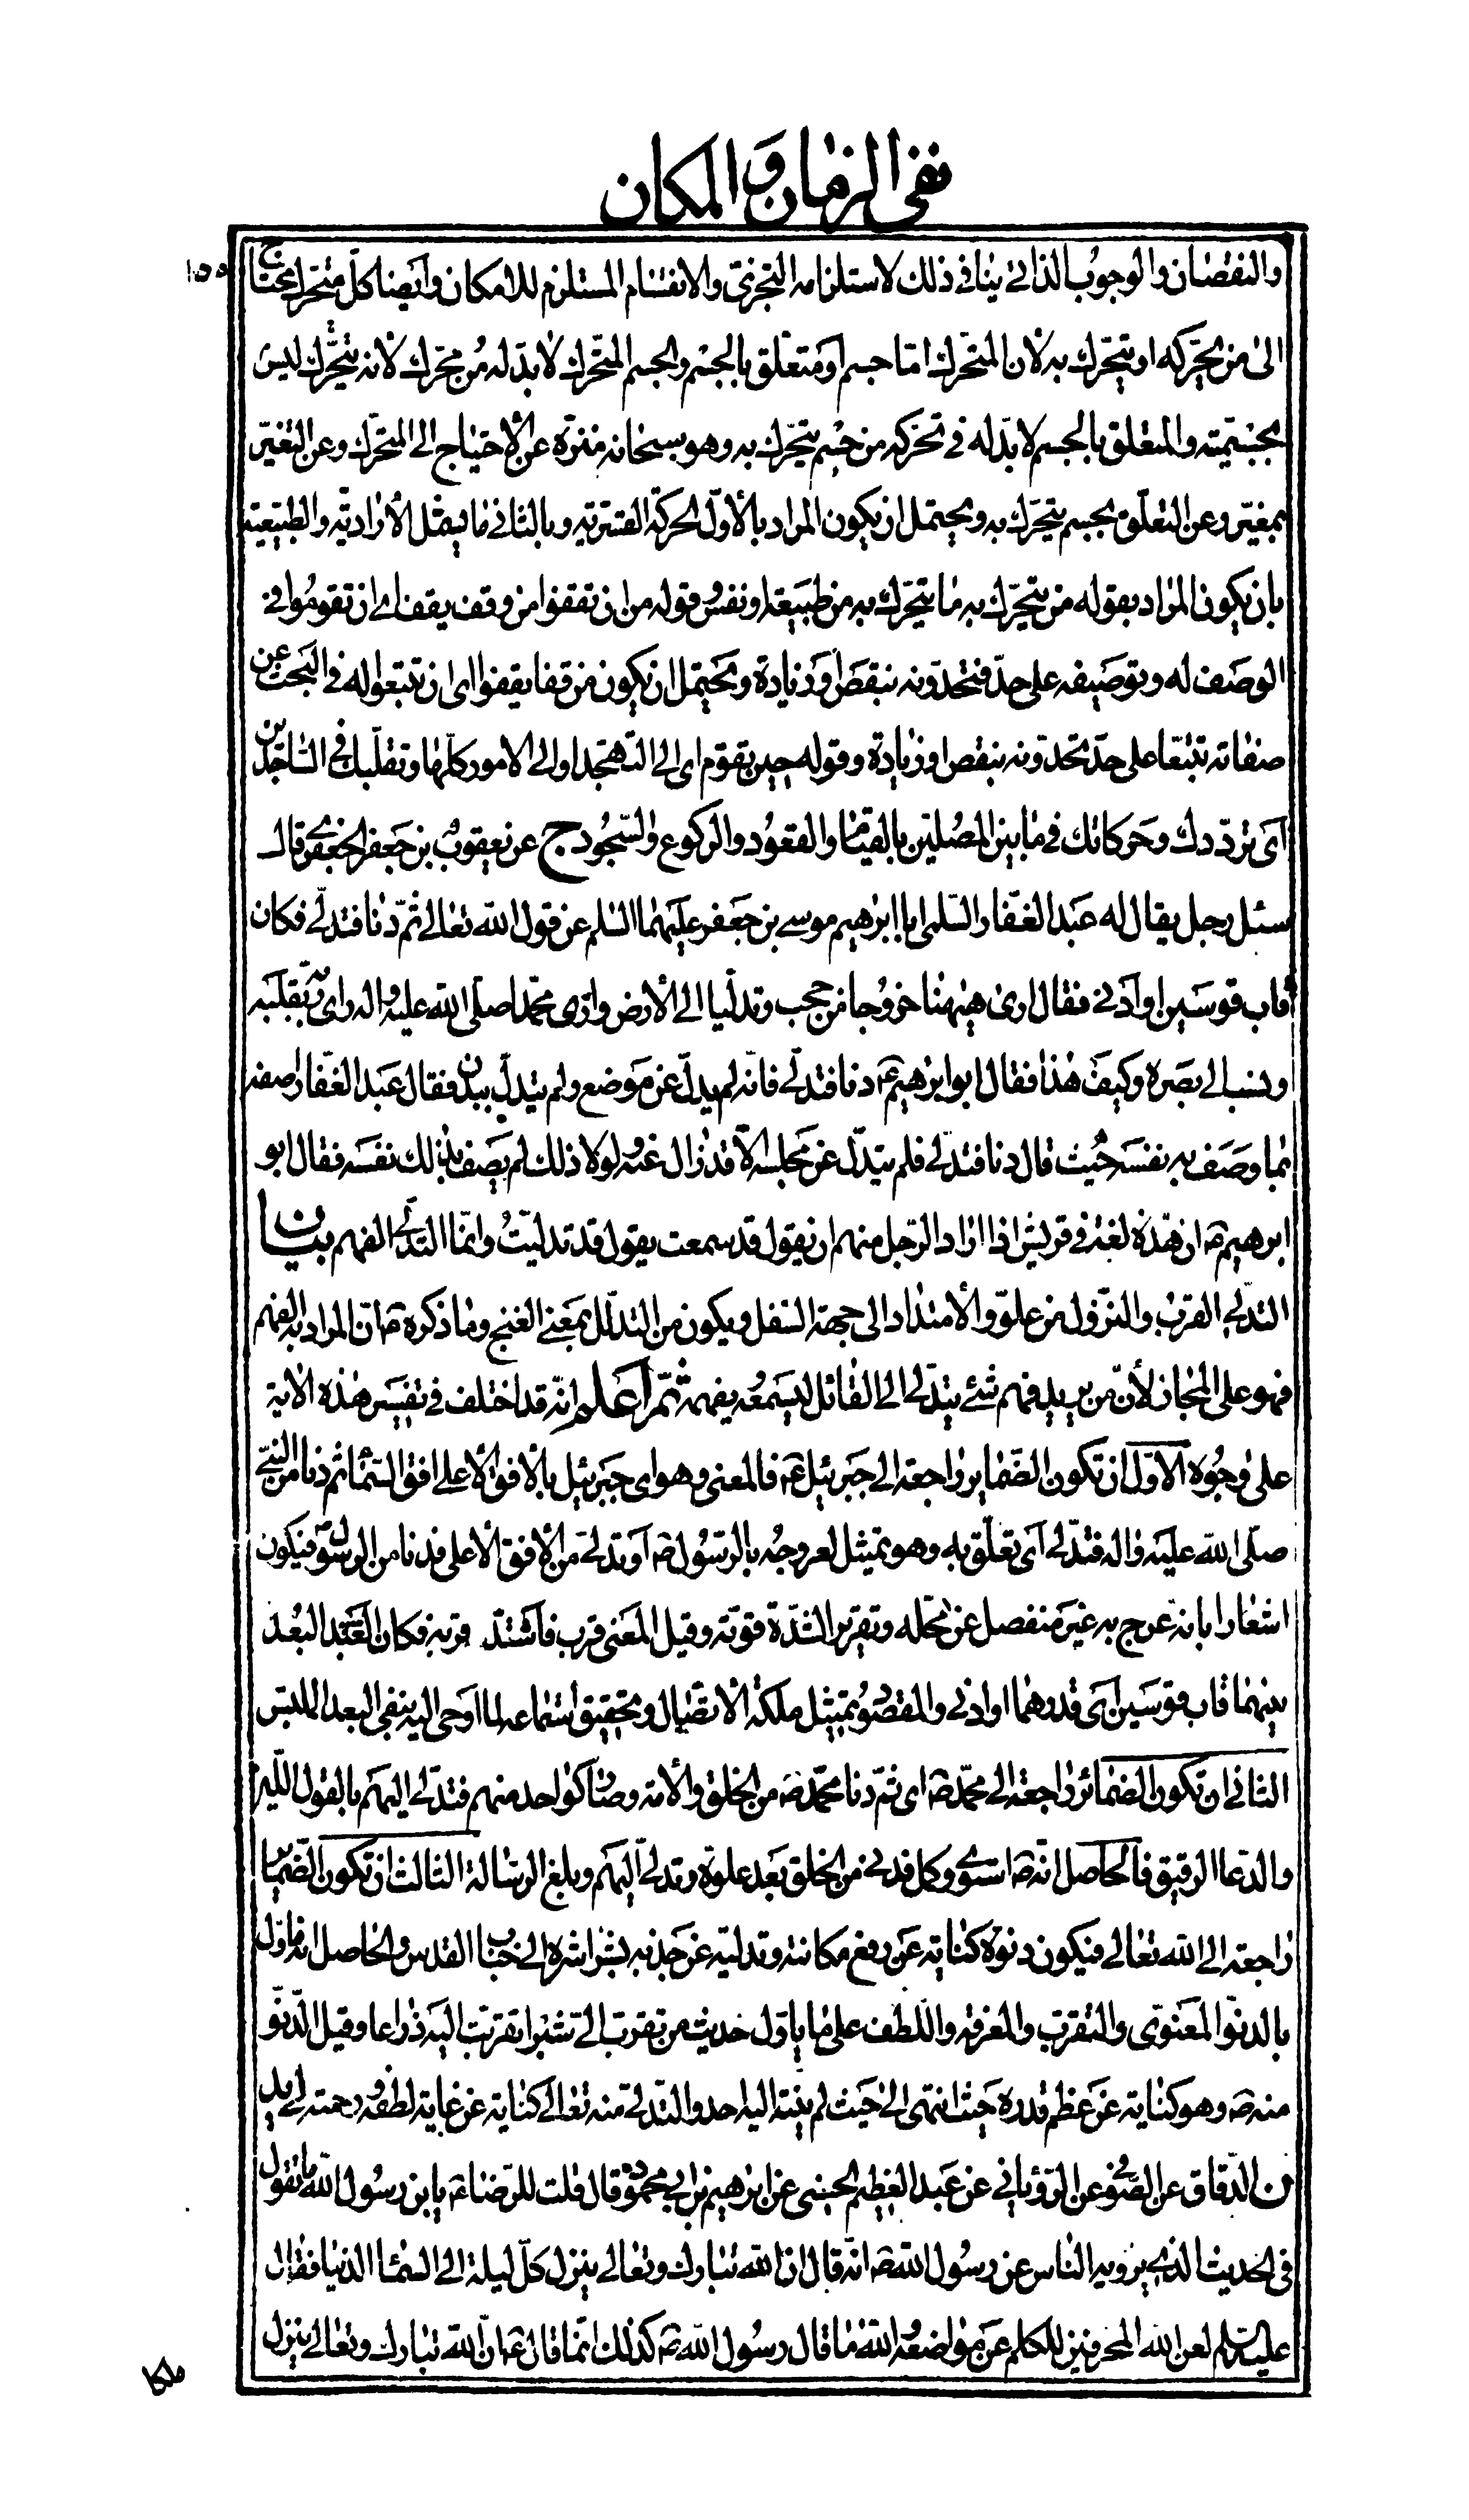 نفی الزمان و المکان
١٥٥
والنقصان والوجوب الذاتي ينافي ذلك لاستلزامه التجزّي والانقسام المستلزم للامكان وايضا كلّ متحرك محتاج
الى من يحرّكه او يتحرّك به لان المتحرّك امّا جسم او متعلّق بالجسم والجسم المتحرّك لا بدّ له من محرّك لانه يتحرّك ليس
بجسميّته والمتعلق بالجسم لا بدّ له في تحركه من جسم يتحرّك به وهو سبحانه منزه عن الاحتياج الى المتحرك وعن التغيّر
بمغيّر وعن التعلّق بجسم يتحرّك به ويحتمل ان يكون المراد بالأوّل الحركة القسريّة وبالثاني ما يشمل الأراديّة والطبيعيّة
بان يكون المراد بقوله من يتحرّك به ما يتحرّك به من طبيعة او نفس وقوله من ان تقفوا من وقف يقف اي ان تقوموا في
الوصف له وتوصيفه على حدّ فتحدّونه بنقص او زيادة ويحتمل ان يكون من قفا يقفوا اى ان تتبعوا له في البحث عن
صفاته تتبّعا على حدّ تحدّونه بنقص او زيادة وقوله حين تقوم اى الى التهجّد او الى الامور كلّها وتقلّبك في السّاجدين
اى تردّدك وحركاتك في ما بين المصلّين بالقيام والقعود والركوع والسّجود ج عن يعقوب بن جعفر الجعفري قال
سئل رجل يقال له عبد الغفّار السّلمى ابا ابرهيم موسى بن جعفر عليهما السّلم عن قول الله تعالى ثمّ دنا فتدلّى فكان
قاب قوسين او ادنى فقال ارى هيهنا خروجا من حجب وتدلّيا الى الأرض وارى محمّدا صلّى الله عليه واله راى ربّه بقلبه
ونسب الى بصره وكيف هذا فقال ابو ابرهيم ع دنا فتدلّى فانّه لم يدلّ عن موضع ولم يتدلّ ببدن فقال عبد الغفّار اصفه
بما وصف به نفسه حيث قال دنا فتدلّى فلم يتدلّ عن مجلسه الّا قد زال عنه ولولا ذلك لم يصف بذلك نفسه فقال ابو
ابرهيم ع ان هذه لغة في قريش اذا اراد الرّجل منهم ان يقول قد سمعت يقول قد تدلّيت وانّما التدلّي الفهم بيان
التدلّي القرب والنّزول من علوّ والأمتداد الى جهة السّفل ويكون من التدلّل بمعنى الغنج وما ذكره ع انّ المراد به الفهم
فهو على المجاز لأنّ من يريد فهم شئ يتدلّى الى القائل ليسمعه يفهمه ثمّ اعلم انّه قد اختلف في تفسير هذه الاية
على وجوه الاوّل ان تكون الضّماير راجعة الى جبرئيل ع فالمعنى وهو اى جبرئيل بالأفق الأعلى افق السّماء ثم دنا من النّبيّ
صلّى الله عليه واله فتدلّى اى تعلّق به وهو تمثيل لعروجه بالرّسول ص او تدلّى من الأفق الأعلى فدنا من الرسول ص فيكون
اشعارا بانه عرج به غير منفصل عن محلّه وتقرير الشدّة قوّته وقيل المعنى قرب فاشتدّ قربه فكان البعد
بينهما قاب قوسين اى قدرهما او ادنى والمقصود تمثيل ملكة الاتّصال وتحقيق استماعه لما اوحى اليه بنفى البعد الملبس
الثاني ان تكون الضمائر راجعة الى محمّد ص اى ثمّ دنا محمّد ص من الخلق والأمة وصار كواحد منهم فتدلّى اليهم بالقول اللّين
والدّعاء الرقيق فالحاصل انّه ص استوى وكمل فدنى من الخلق بعد علوّه وتدلّى اليهم وبلغ الرسالة الثالث ان تكون الضّماير
راجعة الى الله تعالى فيكون دنوّه كناية عن رفع مكانته وتدلّيه عن جذبه بشراشره الى جناب القدس والحاصل انه ماوّل
بالدنوّ المعنوّى والتقرّب والمعرفة واللّطف على ما ياوّل حديث من تقرّب الىّ شبرا تقرّبت اليه ذراعا وقيل الدّنوّ
منه ص وهو كناية عن عظم قدره حيث انتهى الى حيث لم ينته اليه احد والتدلّي منه تعالى كناية عن غاية لطفه ورحمته لى يد
ن الدّقاق عن الصّوفي عن الرّوياني عن عبد العظيم الحسني عن ابرهيم بن ابي محمود قال قلت للرّضا ع يابن رسول الله ما تقول
في الحديث الذي يرويه النّاس عن رسول الله ص انّه قال انّ الله تبارك وتعالى ينزل كلّ ليلة الى السّماء الدنيا فقال
عليه السّلم لعن الله المحرفين للكلم عن مواضعه والله ما قال رسول الله ص كذلك انّما قال ع انّ الله تبارك وتعالى ينزل